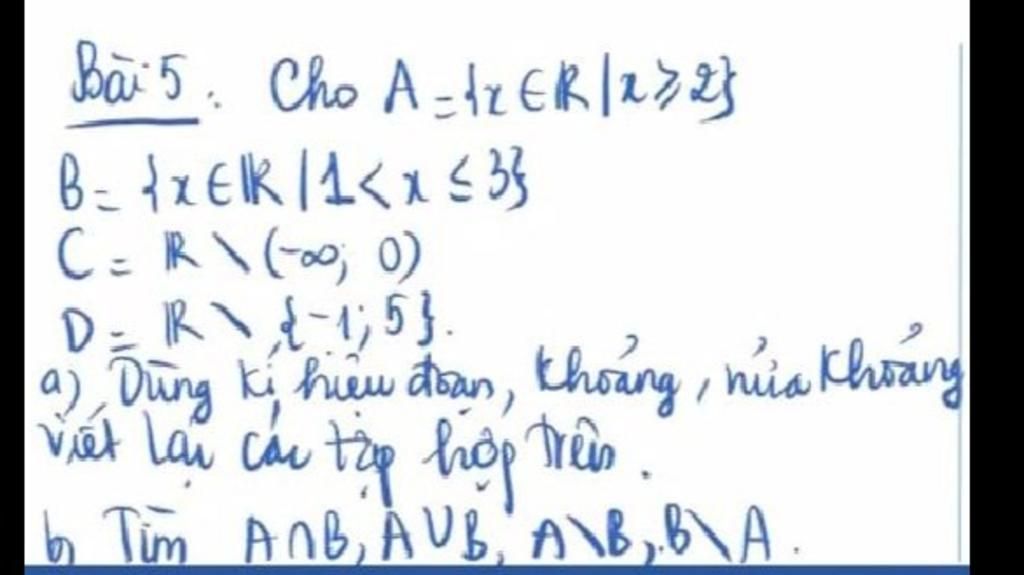 Bài 5. Cho A = {x ∈ ℝ | x ≥ 2}
B = {x ∈ ℝ | 1 < x ≤ 3}
C = ℝ \ (-∞; 0)
D = ℝ \ {-1; 5}.
a) Dùng kí hiệu đoạn, khoảng, nửa khoảng
viết lại các tập hợp trên.
b) Tìm A∩B, A∪B, A\B, B\A.